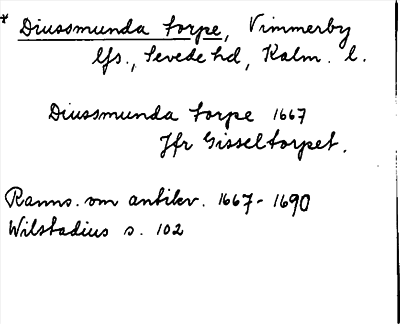 * Diussmunda torpe, Vimmerby
lfs., Sevede hd, Kalm. l.
Diussmunda torpe 1667
Jfr Gisseltorpet.
Ranns. om antikv. 1667-1690
Wilstadius s. 102